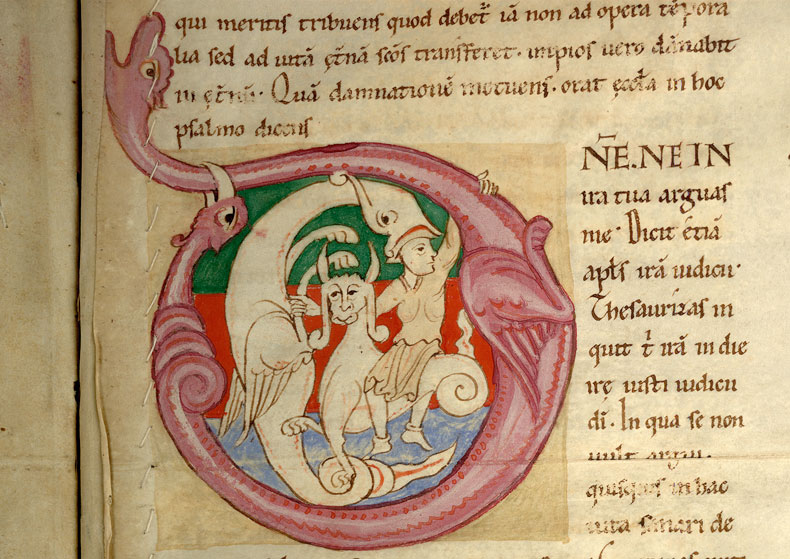 qui meritis tribuens quod debet᷑ iā non ad opera tēpora
lia sed ad uitā ęt̄nā sc̄os transferet · impios uero dānabit
in ęt̄nū · Quā damnationē metuens · orat ęccl̄a in hoc
psalmo dicens
D
N̄E . NE IN
ira tua arguas
me · Dicit etiā
apl̄s irā iudicii ·
Thesaurizas in
quit t̄ irā in die
irę iusti iudicii
dī · In qua se non
uult argui ·
quisquis in hac
uita sanari de